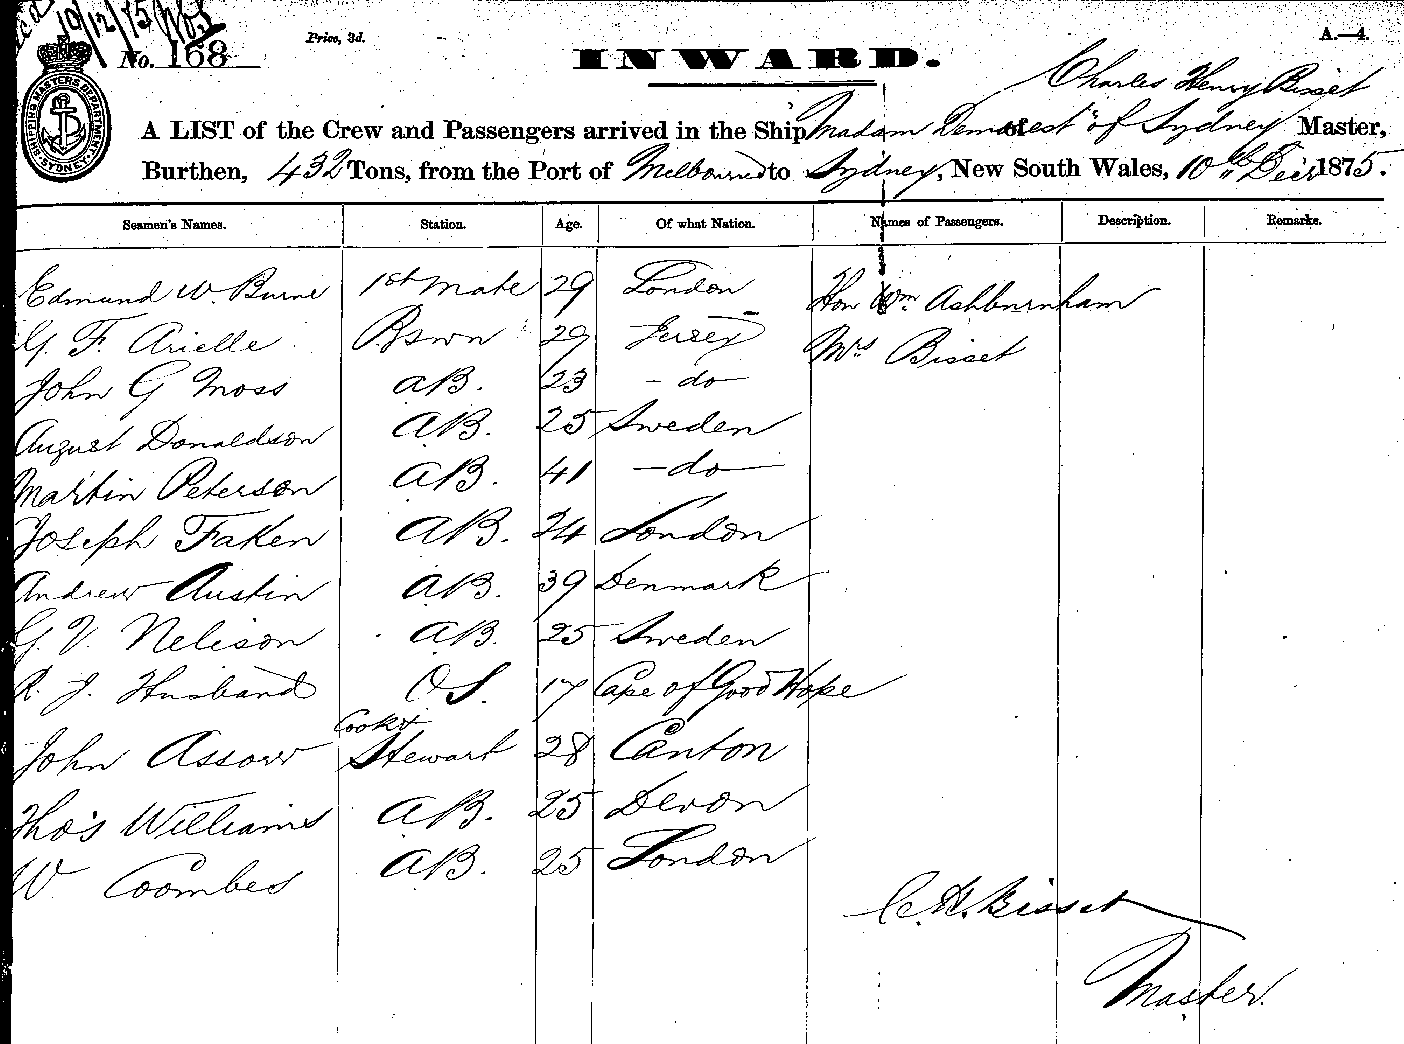 10/12/75
No. 168
Price, 3d.
A.—4.
INWARD.
SHIPPING MASTERS DEPARTMENT. SYDNEY
Charles Henry Bisset
A LIST of the Crew and Passengers arrived in the Ship Madam Demorest of of Sydney Master,
Burthen, 432 Tons, from the Port of Melbourne to Sydney, New South Wales, 10th Decr 1875.
Seamen's Names. Station. Age. Of what Nation. Names of Passengers. Description. Remarks.
Edmund W. Burne 1st Mate 29 London Hon Wm. Ashburnham
G. F. Arielle Bswn 29 Jersey Mrs Bisset
John G Moss AB. 23 - do -
August Donaldson AB. 25 Sweden
Martin Peterson AB. 41 - do -
Joseph Faken AB. 24 London
Andrew Austin AB. 39 Denmark
G. V. Nelison AB. 25 Sweden
R. J. Husband OS. 17 Cape of Good Hope
John Assow Cook & Stewart 28 Canton
Tho's Williams AB. 25 Devon
W Coombes AB. 25 London
C. H. Bisset
Master.